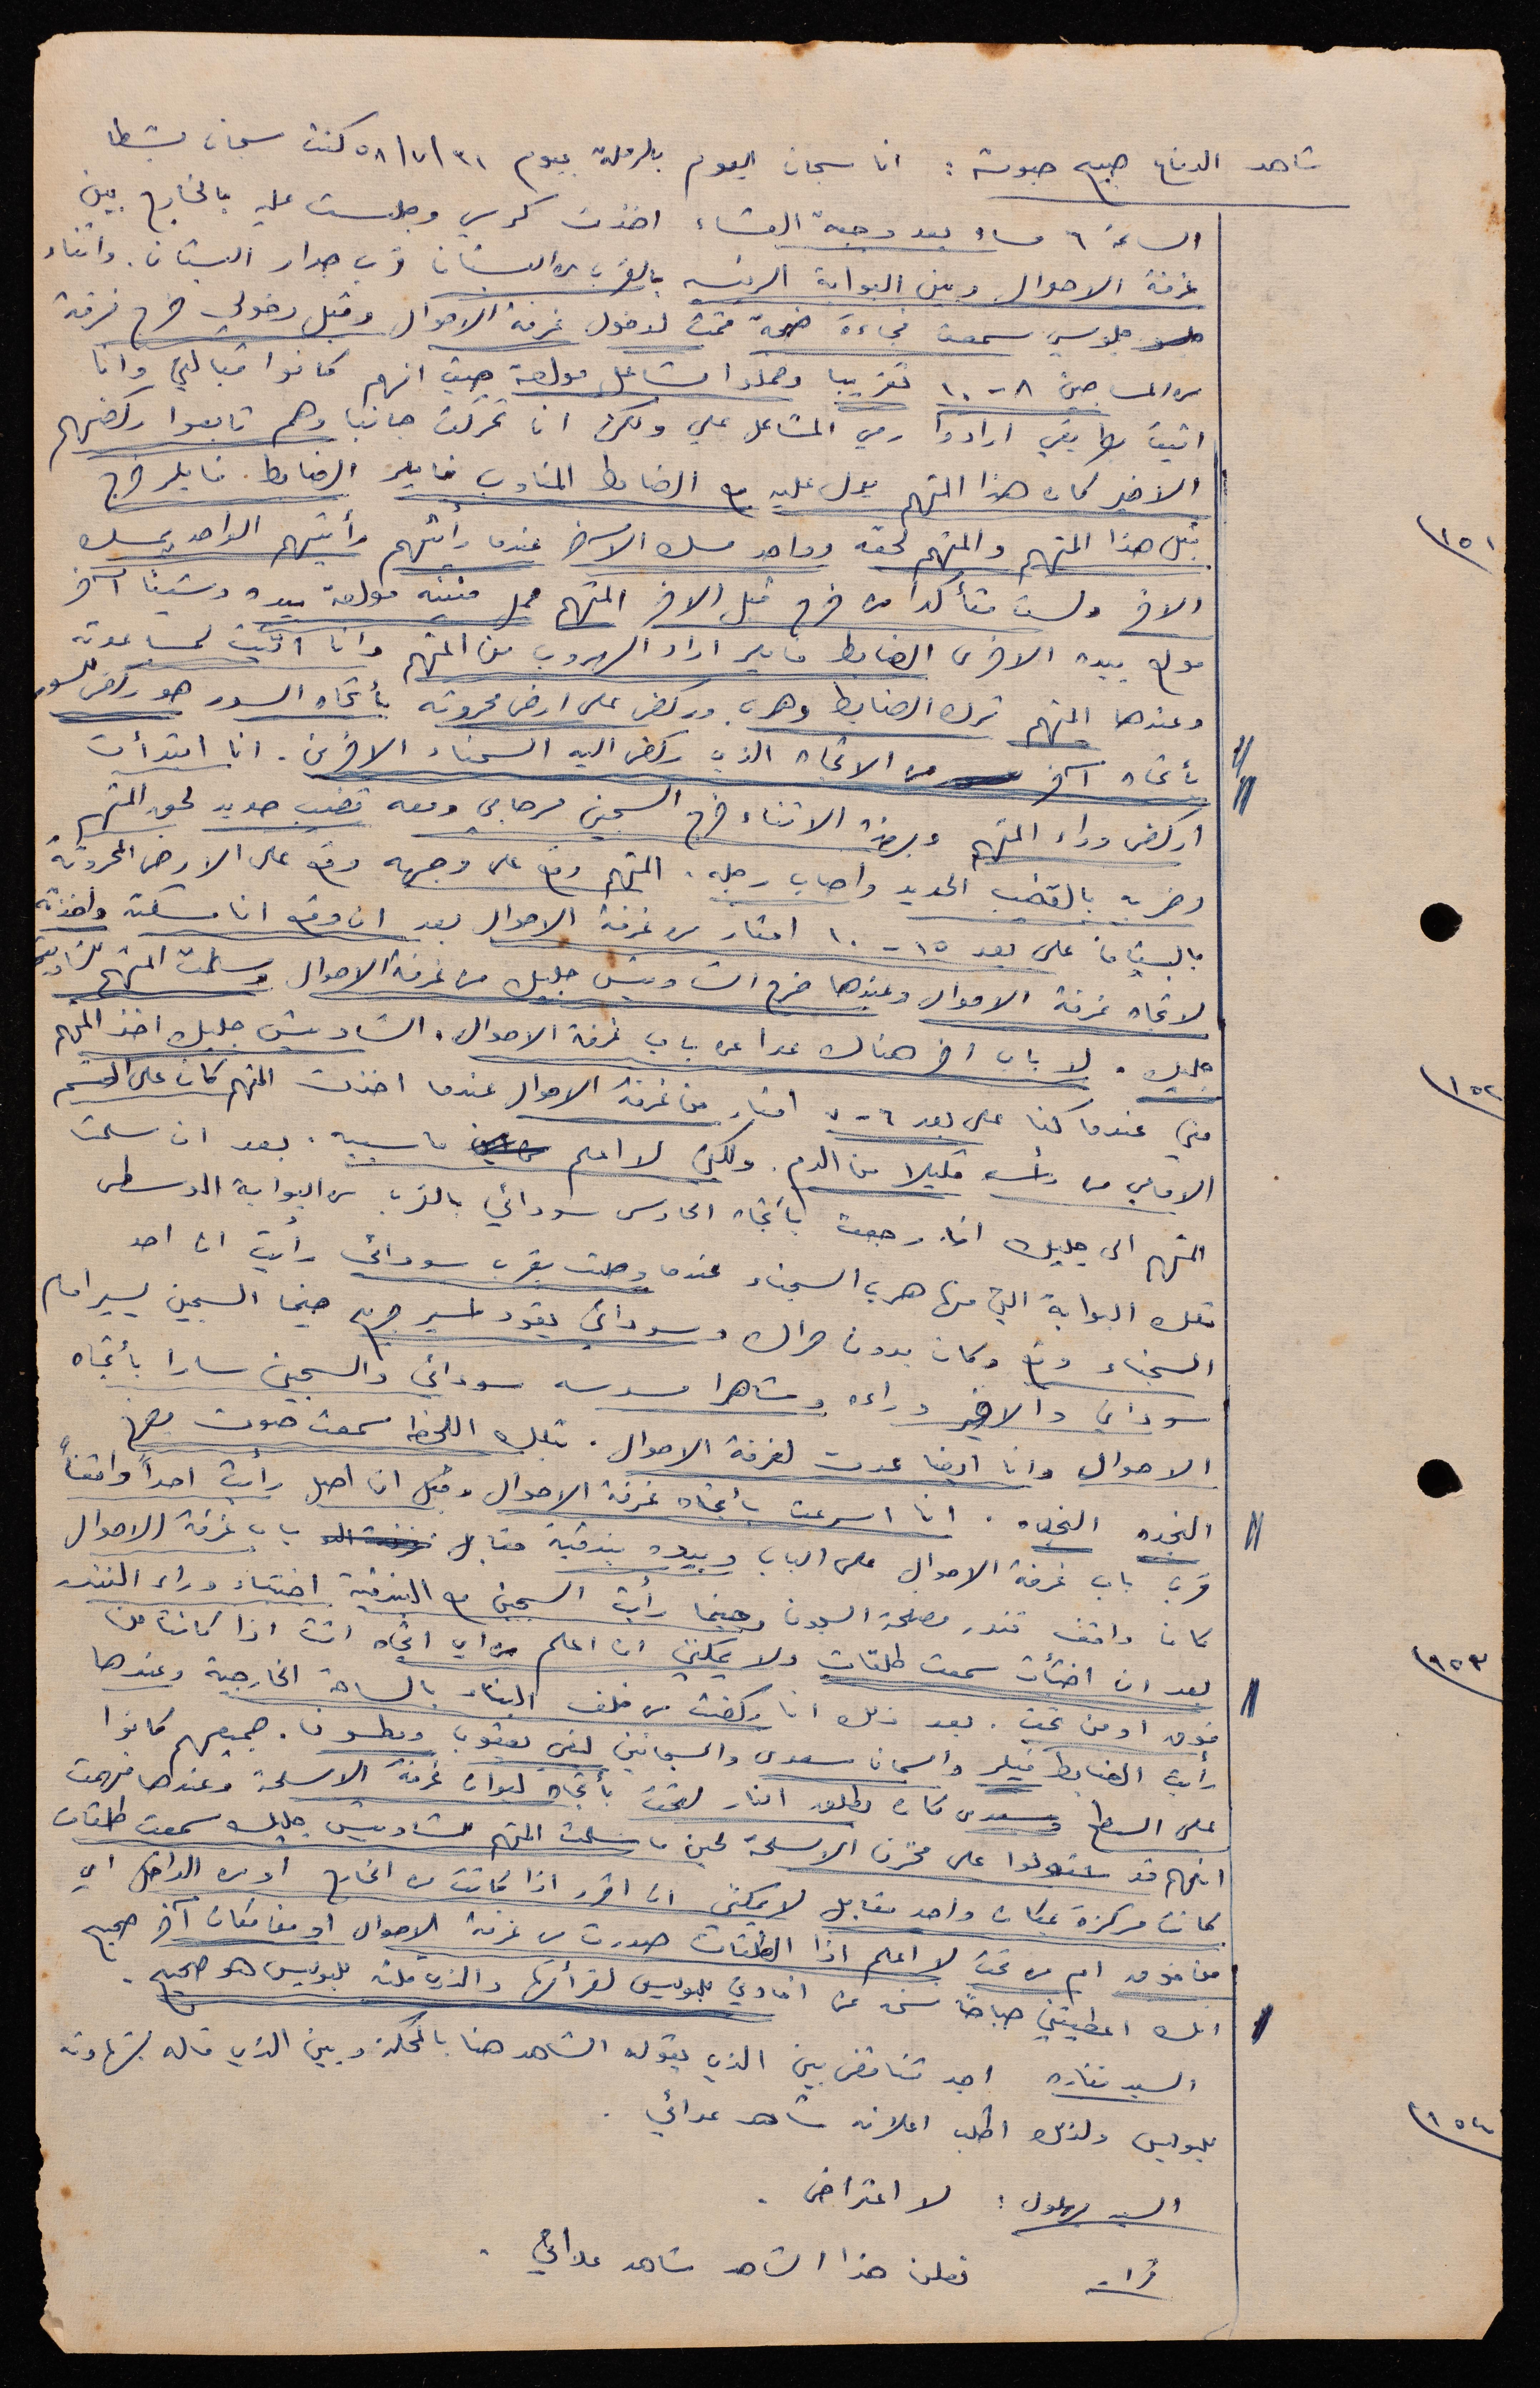 شاهد الدفاع صبيح حبوشه : انا سجان اليوم بالرملة بيوم ٥٨/٧/٣١ كنت سجان بشطا
الساعة ٦ مساء بعد وجبة العشاء اخذت كرسي وجلست عليه بالخارج بين
غرفة الاحوال وبين البوابة الرئيسيه بالقرب من البستان قرب جدار البستان . واثناء
جلوسي سمعت فجاءة ضجة قمت لدخول غرفة الاحوال وقبل دخولي خرج فرقة
من المساجين ٨-١٠ تقريبا وحملوا مشاعل مولعة حيث انهم كانوا قبالتي وانا
اتيت بطريقي ارادوا رمي المشاعل علي ولكن انا تحركت جانبا وهم تابعوا ركضهم
الاخير كان هذا المتهم يدل عليه مع الضابط المناوب فايلر الضابط فايلر خرج
قبل هذا المتهم والمتهم لحقه وواحد مسك الاخر عندما رأيتهم رأيتهم الواحد يمسك
الاخر ولست متأكدا من خرج قبل الاخر المتهم حمل قنينه مولعة بيده وشيئا آخر
مولع بيده الاخرى الضابط فايلر اراد الهروب من المتهم وانا اتيت لمساعدته
وعندها المتهم ترك الضابط وهرب وركض على ارض محروثه بأتجاه السور هو ركض للسور
بأتجاه آخر من الاتجاه الذي ركض اليه السجناء الاخرين . انا ابتدأت
اركض وراء المتهم وبهذه الاثناء خرج السجين مرحابي ومعه قضيب حديد لحق المتهم
وضربه بالقضيب الحديد واصاب رجله . المتهم وقع على وجهه وقع على الارض المحروثة
بالبستان على بعد ١٥-١٠ امتار من غرفة الاحوال بعد ان وقع انا مسكته واخذته
لاتجاه غرفة الاحوال وعندها خرج الشاويش جليلك من غرفة الاحوال وسلمت المتهم للشاويش
جليلك . لا باب اخر هناك عدا عن باب غرفة الاحوال . الشاويش جليلك اخذ المتهم
مني عندما كنا على بعد ٦-٧ امتار من غرفة الاحوال عندما اخذت المتهم كان على القسم
الامامي من رأسه قليلا من الدم . ولكني لا اعلم ما سببه . بعد ان سلمت
المتهم الى جليلك انا رجعت بأتجاه الحارس سودائي بالقرب من البوابة الوسطى
تلك البوابة التي منها هرب السجناء عندما وصلت بقرب سودائي رأيت ان احد
السجناء وقع وكان بدون حراك وسودائي يقود اسير جريح حينما السجين يسير امام
سودائي والاخير وراءه وشاهرا مسدسه سودائي والسجين سارا بأتجاه
الاحوال وانا ايضا عدت لغرفة الاحوال . بتلك اللحظه سمعت صوت يصرخ
النجده النجده . انا اسرعت بأتجاه غرفة الاحوال وقبل ان اصل رأيت احداً واقفاً
قرب باب غرفة الاحوال على الباب وبيده بندقية مقابل باب غرفة الاحوال
كان واقف تندر مصلحة السجون وحينما رأيت السجين مع البندقية اختبأت وراء التندر
بعد ان اختبأت سمعت طلقات ولا يمكنني ان اعلم من اي اتجاه اتت اذا كانت من
فوق او من تحت . بعد ذلك انا ركضت من خلف البناء بالساحة الخارجية وعندها
رأيت الضابط فيلر والسجان سعدى والسجانين ليفي يعقوب وبطسون . جميعهم كانوا
على السطح وسعدى كان يطلق النار لتحت بأتجاه ليوان غرفة الاسلحة وعندها فهمت
انهم قد ستولوا على مخزن الاسلحة لحين ما سلمت المتهم للشاويش جليلك سمعت طلقات
كانت مركزة بمكان واحد مقابل لا يمكنني ان اقرر اذا كانت من الخارج او من الداخل اي
من فوق ام من تحت لا اعلم اذا الطلقات صدرت من غرفة الاحوال او من مكان آخر صحيح
انك اعطيتني صباحاً نسخه عن افادتي بالبوليس لقرأتها والذي قلته بالبوليس هو صحيح .
السيد اجد تناقض بين الذي يقوله الشاهد هنا بالمحكمة وبين الذي قاله بشهادته
بالبوليس ولذلك اطلب اعلانه شاهد عدائي .
السيد بهلول : لا اعتراض .
قرار نعلن هذا الشاهد شاهد عدائي .
١٥١
١٥٢
١٥٣
١٥٤